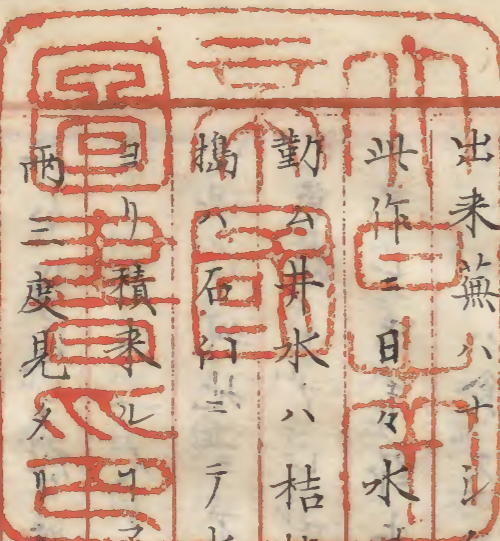 出来蕪ハナシ
此作ニ日々水
勤ム井水ハ桔
搗ハ石臼ニテ
ヨリ積来ルコ
両三度見タリ